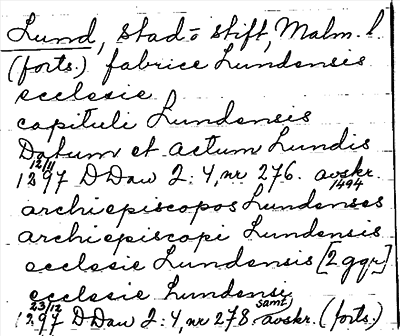 Lund, stad o stift, Malm. l.
(forts.) fabrice Lundensis
ecclesie
capituli Lundensis
Datum et actum Lundis
12/11
1297 DDan 2:4, nr 276. avskr. 1494
archiepiscopos Lundenses
archiepiscopi Lundensis
ecclesie Lundensis [2 ggr]
ecclesie Lundense
23/12
1297 DDan 2:4, nr 278 samt. avskr. (forts.)